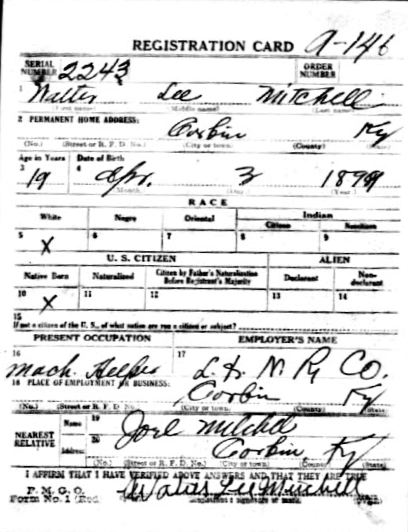 REGISTRATION CARD A-146
SERIAL NUMBER 2243 ORDER NUMBER
1 Walter Lee Mitchell
(First name) (Middle name) (Last name)
2 PERMANENT HOME ADDRESS:
Corbin Ky
(No.) (Street or R. F. D. No.) (City or town) (County) (State)
Age in Years Date of Birth
3 19 4 Apr. 3 1899
(Month) (Day) (Year)
RACE
White Negro Oriental Indian
Citizen Noncitizen
5 X 6 7 8 9
U. S. CITIZEN ALIEN
Native Born Naturalized Citizen by Father's Naturalization Before Registrant's Majority Declarant Non-declarant
10 X 11 12 13 14
15
If not a citizen of the U. S., of what nation are you a citizen or subject?
PRESENT OCCUPATION EMPLOYER'S NAME
16 Mach. Helper 17 L. & N. Ry Co.
18 PLACE OF EMPLOYMENT OR BUSINESS:
Corbin Ky
(No.) (Street or R. F. D. No.) (City or town) (County) (State)
NEAREST RELATIVE
Name 19 Joel Mitchel
Address 20 Corbin, Ky
(No.) (Street or R. F. D. No.) (City or town) (County) (State)
I AFFIRM THAT I HAVE VERIFIED ABOVE ANSWERS AND THAT THEY ARE TRUE
P. M. G. O.
Form No. 1 (Red) Walter Lee Mitchell
(Registrant's signature or mark)